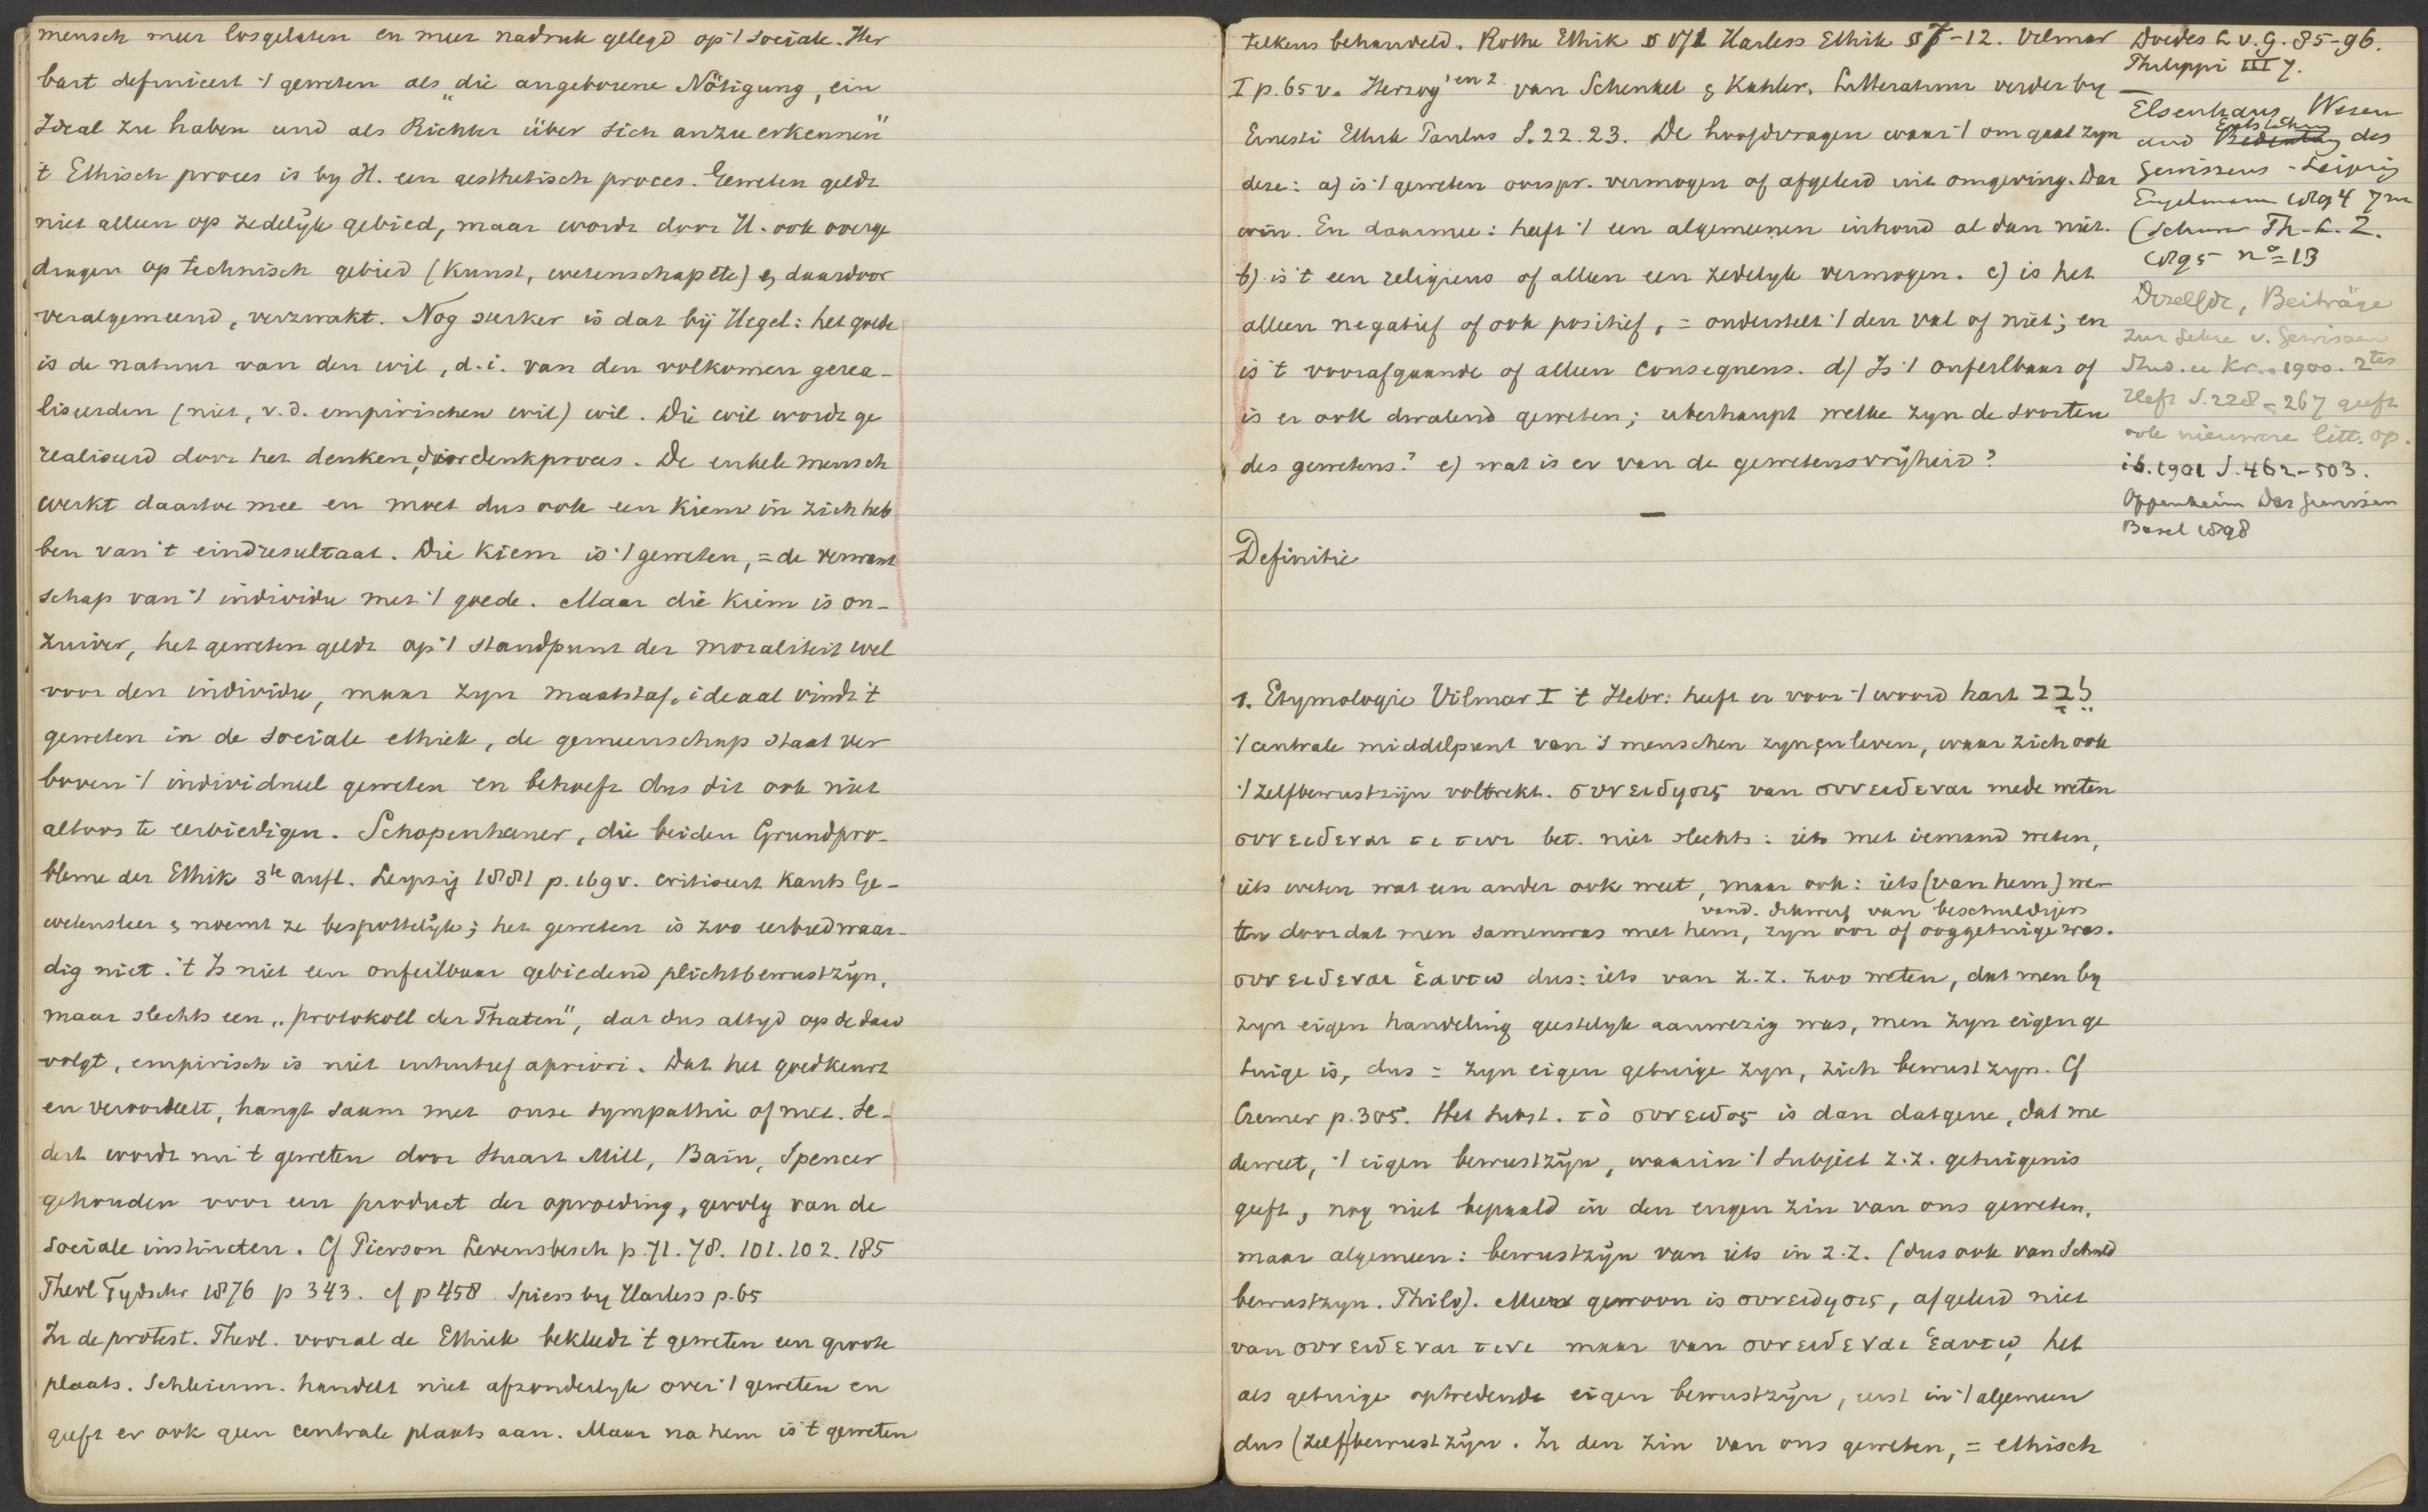 mensch meer losgelaten en meer nadruk gelegd op 't sociale. Her
bart definieert 't geweten als „die angeborene Nötigung, ein
Ideal zu haben und als Richter über sich anzuerkennen"
't Ethisch proces is by H. een aesthetisch proces. Geweten geldt
niet alleen op zedelijk gebied, maar wordt door H. ook overge
dragen op technisch gebied (Kunst, wetenschap etc) & daardoor
veralgemeend, verzwakt. Nog sterker is dat bij Hegel: het goede
is de natuur van den wil, d.i. van den volkomen gerea-
liseerden (niet, v.d. empirischen wil) wil. Die wil wordt ge
realiseerd door het denken, door denkproces. De enkele mensch
werkt daartoe mee en moet dus ook een kiem in zich heb
ben van 't eindresultaat. Die kiem is 't geweten, = de verwant
schap van 't individu met 't goede. Maar die kiem is on-
zuiver, het geweten geldt op 't standpunt der moraliteit wel
voor den individu, maar zyn maatstaf, ideaal vindt 't
geweten in de sociale ethiek, de gemeenschap staat ver
boven 't individueel geweten en behoeft dus dit ook niet
altoos te eerbiedigen. Schopenhauer, die beiden Grundpro-
bleme der Ethik 3te aufl. Leipzig 1881 p. 169 v. critiseert Kants Ge-
wetensleer & noemt ze bespottelijk; het geweten is zoo eerbiedwaar-
dig niet. 't Is niet een onfeilbaar gebiedend plichtbewustzijn,
maar slechts een „protokoll der Thaten", dat dus altyd op de daad
volgt, empirisch is niet intuitief apriori. Dat het goedkeurt
en veroordeelt, hangt saam met onze sympathie of niet. Se-
dert wordt nu 't geweten door Stuart Mill, Bain, Spencer
gehouden voor een product der opvoeding, gevolg van de
sociale instincten. Cf Pierson Levensbesch p. 71. 78. 101. 102. 185
Theol Tydschr 1876 p 343. cf p 458 Spiess by Harless p. 65
In de protest. Theol. vooral de Ethiek bekleedt 't geweten een groote
plaats. Schleierm. handelt niet afzonderlyk over 't geweten en
geeft er ook geen centrale plaats aan. Maar na hem is 't geweten
telkens behandeld. Rothe Ethik § 171 Harless Ethik § 7-12. Vilmar
I p. 65 v. Herzog 1 en 2 van Schenkel & Kahler. Litteratuur verder by
Ernesti Ethik Paulus S. 22. 23. De hoofdvragen waar 't om gaat zyn
deze: a) is 't geweten oorspr. vermogen of afgeleid uit omgeving. Dar
win. En daarmee: heeft 't een algemeenen inhoud al dan niet.
b) is 't een religieus of alleen een zedelyk vermogen. c) is het
alleen negatief of ook positief, = onderstelt 't den val of niet; en
is 't voorafgaande of alleen consequens. d) Is 't onfeilbaar of
is er ook dwalend geweten; uberhaupt welke zyn de soorten
des gewetens? e) wat is er van de gewetensvrijheid?
Doedes L v. G. 85-96.
Philippi III 7.
Elsenhans, Wesen
und Entstehung des
Gewissens - Leipzig
Engelmann 1894 7 m
(Schurer Th. L. Z.
1895 no 13
Dezelfde, Beiträge
zur Lehre v. Gewissen
Stud. u Kr. 1900. 2tes
Heft S. 228-267 geeft
ook nieuwere litt. op.
ib. 1901 S. 462-503.
Oppenheim Das Gewissen
Basel 1898
Definitie
1. Etymologie Vilmar I 't Hebr: heeft er voor 't woord hart לֵבָב
't centrale middelpunt van 's menschen zyn en leven, waar zich ook
't zelfbewustzijn voltrekt. συνειδησις van συνειδεναι mede weten
συνειδεναι τι τινι bet. niet slechts: iets met iemand weten,
iets weten wat een ander ook weet, maar ook: iets (van hem) we-
vand. ook van beschuldigers
ten doordat men samenwas met hem, zyn oor of ooggetuige was.
συνειδεναι ἑαυτω dus: iets van z.z. zoo weten, dat men by
zyn eigen handeling geestelyk aanwezig was, men zyn eigen ge
tuige is, dus = zyn eigen getuige zyn, zich bewust zyn. Cf
Cremer p. 305. Het subst. τὸ συνειδος is dan datgene, dat me
deweet, 't eigen bewustzijn, waarin 't subject z.z. getuigenis
geeft, nog niet bepaald in den engen zin van ons geweten,
maar algemeen: bewustzijn van iets in z.z. (dus ook van schuld
bewustzyn. Philo). Meer gewoon is συνειδησις, afgeleid niet
van συνειδεναι τινι maar van συνειδεναι ἑαυτῳ het
als getuige optredende eigen bewustzijn, eerst in 't algemeen
dus (zelf)bewustzijn. In den zin van ons geweten, = ethisch